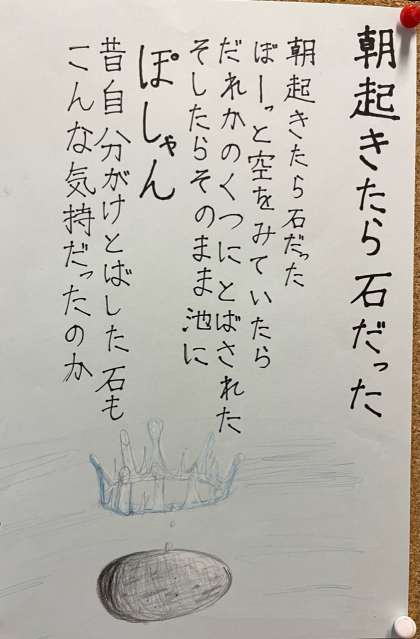 朝起きたら石だった
朝起きたら石だった
ぼーっと空をみていたら
だれかのくつにとばされた
そしたらそのまま池に
ぽしゃん
昔自分がけとばした石も
こんな気持だったのか